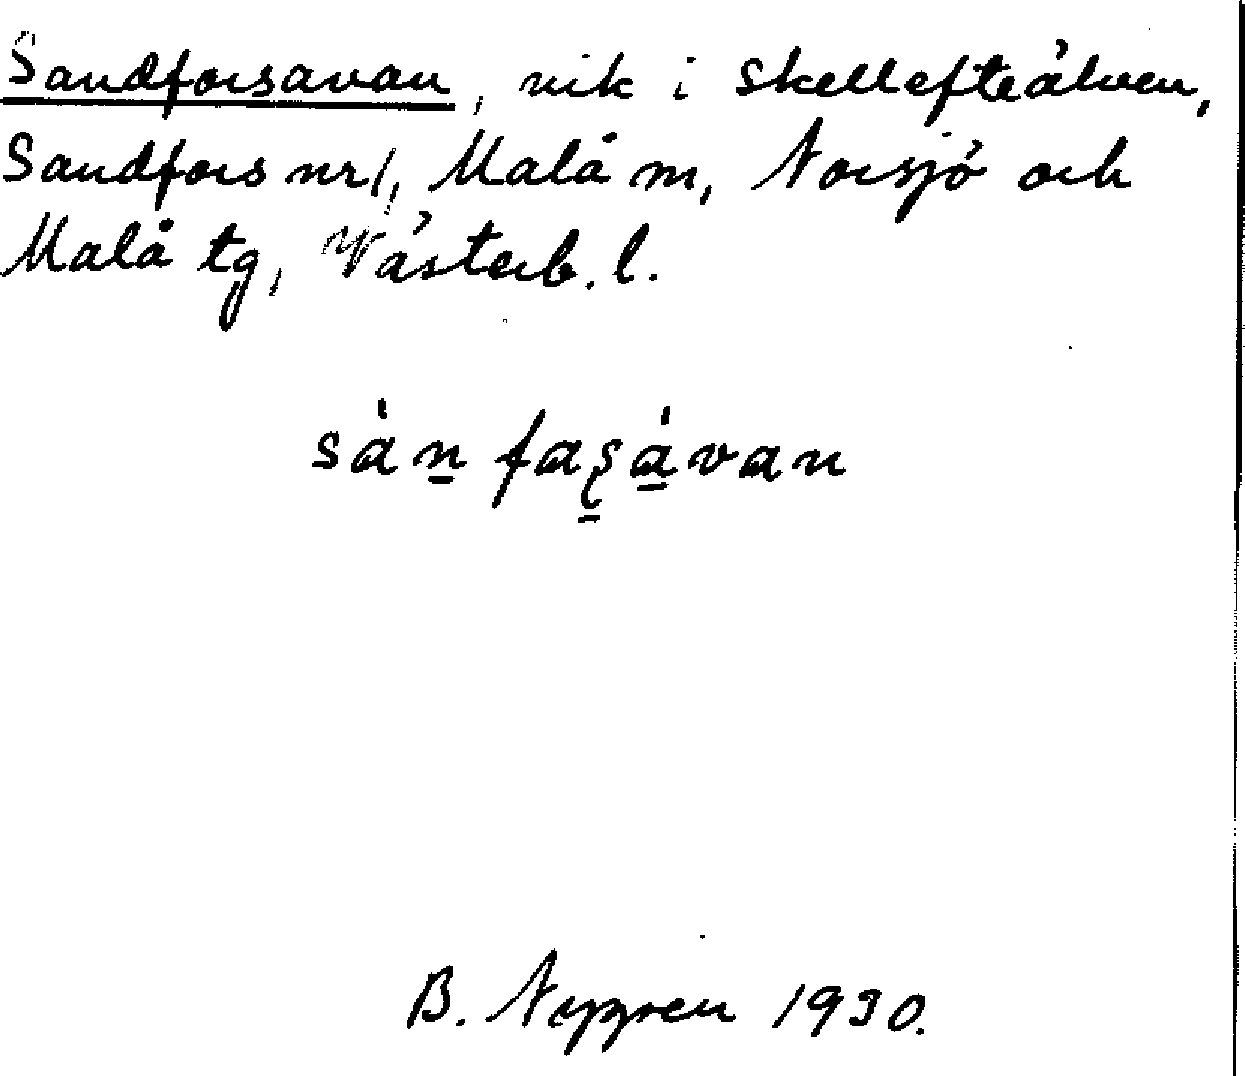 Sandforsavan, vik i Skellefteälven,
Sandfors nr 1, Malå m, Norsjö och
Malå tg, Västerb. l.
sànfaʂávan
B. Nygren 1930.